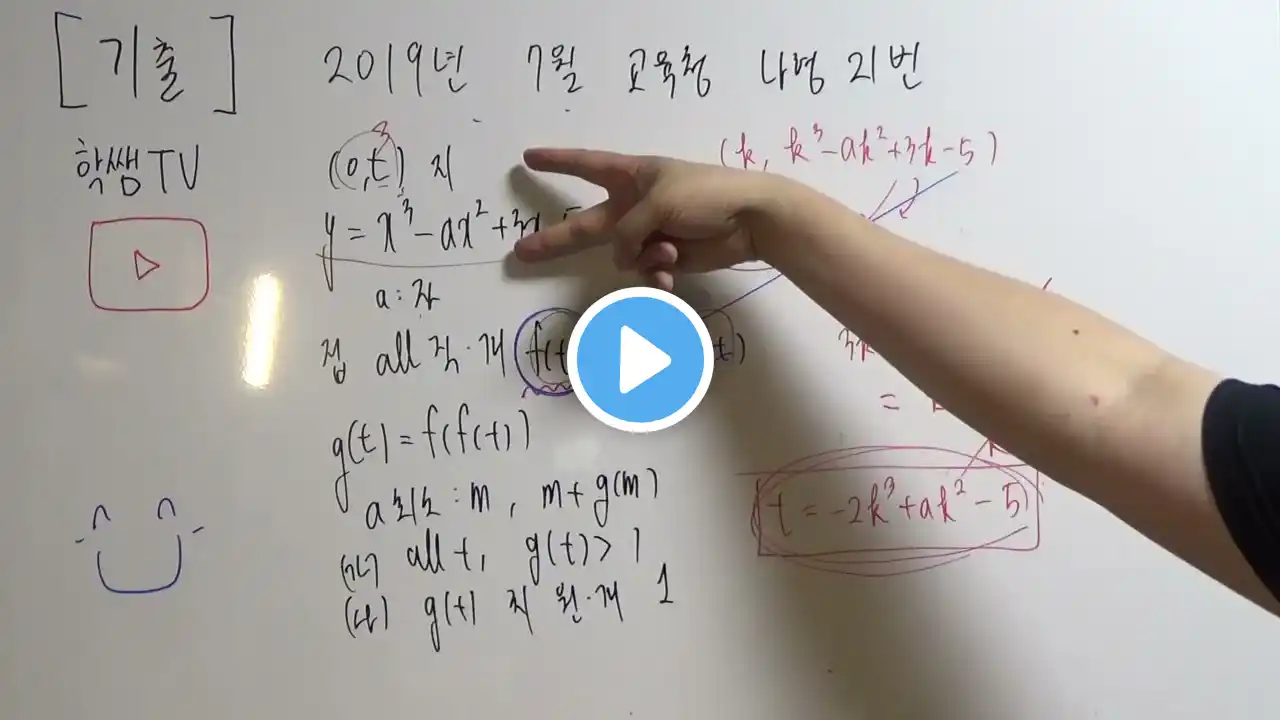 [기출] 2019년 7월 교육청 나형 21번
학쌤TV
(0,t) 지
y = x³ - ax² + 3x
a : 자
접 all 직·개 f(t
t)
g(t) = f(f(t))
a 최소 : m , m + g(m)
(가) all t, g(t) > 1
(나) g(t) 치 원·개 1
(k, k³ - ak² + 3k - 5)
3k
=
t = -2k³ + ak² - 5